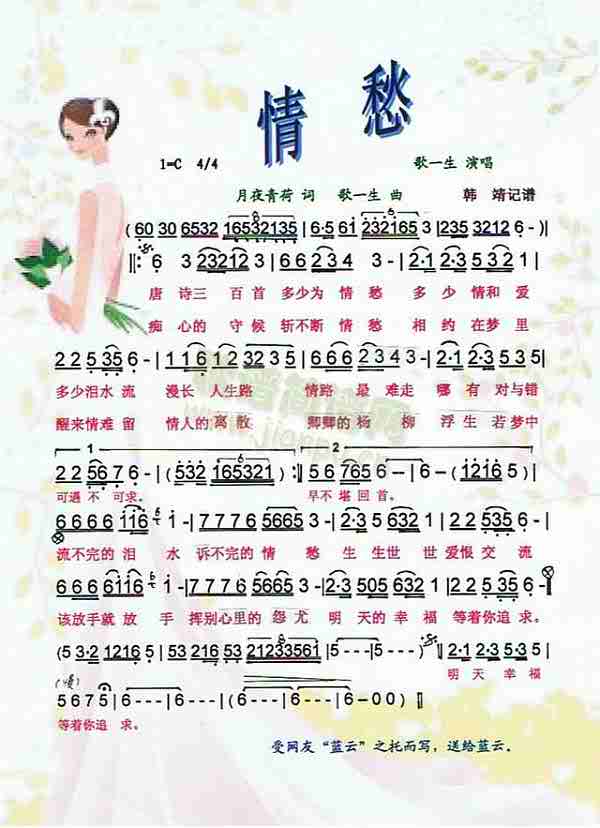 情 愁
1=C 4/4 歌一生 演唱
月夜青荷 词 歌一生 曲 韩 靖记谱
(60 30 6532 16532135 | 6·5 61 232165 3 | 235 3212 6 - )
6 3 23212 3 | 6·1 2·3 2 1 6 - | 2·1 2·3 5653 2 3 |
唐 诗三 百首 多少为 情愁 多少 情和 爱
痴 心的 守候 斩不断 情愁 相 约在梦里
2 2 5 35 6 - | 1 1 6 1 2 32 3 - | 2·3 43 3 - | 2·1 2·3 5653 5 |
多少泪水 流 漫长 人生路 情路 最 难走 哪 有 对与错
醒来情难 留 情人的离散 卿卿的 杨 柳 浮生 若梦中
1 2
2 2 56 7 6 - | (532 165321) 5 6 765 6 - | (1 2 1 6 5)
可遇 不 可求。 早不 堪 回首。
6 6 6 6 116 6 - | 7 7 7 6 5665 3 - | 2·3 5 632 1 | 2 2 535 6 - |
流不完的 泪 水 诉不完的 情 愁 生 生世 世 爱恨 交 流
6 6 6 6116 6 - | 7 7 7 6 5665 3 - | 2·3 505 632 1 | 2 2 5 3 5 6 - |
该放手就 放 手 挥别心里的 怨尤 明 天的 幸 福 等着你追 求。
(5 3·2 1216 5 | 5653 216 | 53216 53 21233561 | 5 - - - ) | 2·1 2·3 5·3 5 |
明 天 幸福
(慢)
5 6 7 5 | 6 - - - | 6 - - - | (6 - - - | 6 - - - | 6 - 0 0 )
等着你 追 求。
受网友“蓝云”之托而写，送给蓝云。